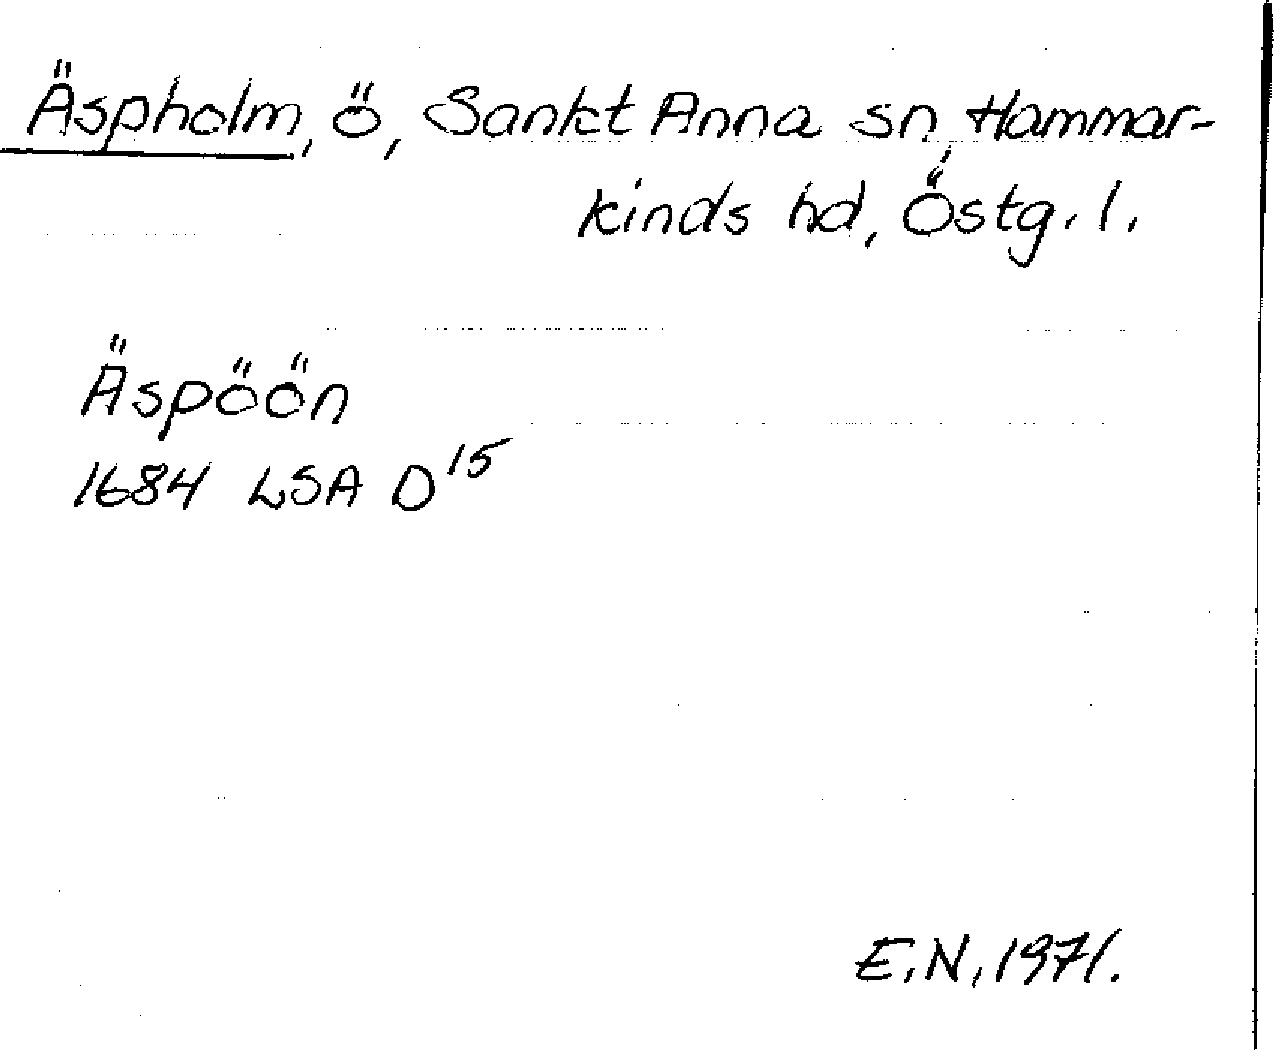 Äspholm, ö, Sankt Anna sn, Hammar-
kinds hd, Östg. l.
Äspöön
1684 LSA D15
E.N. 1971.